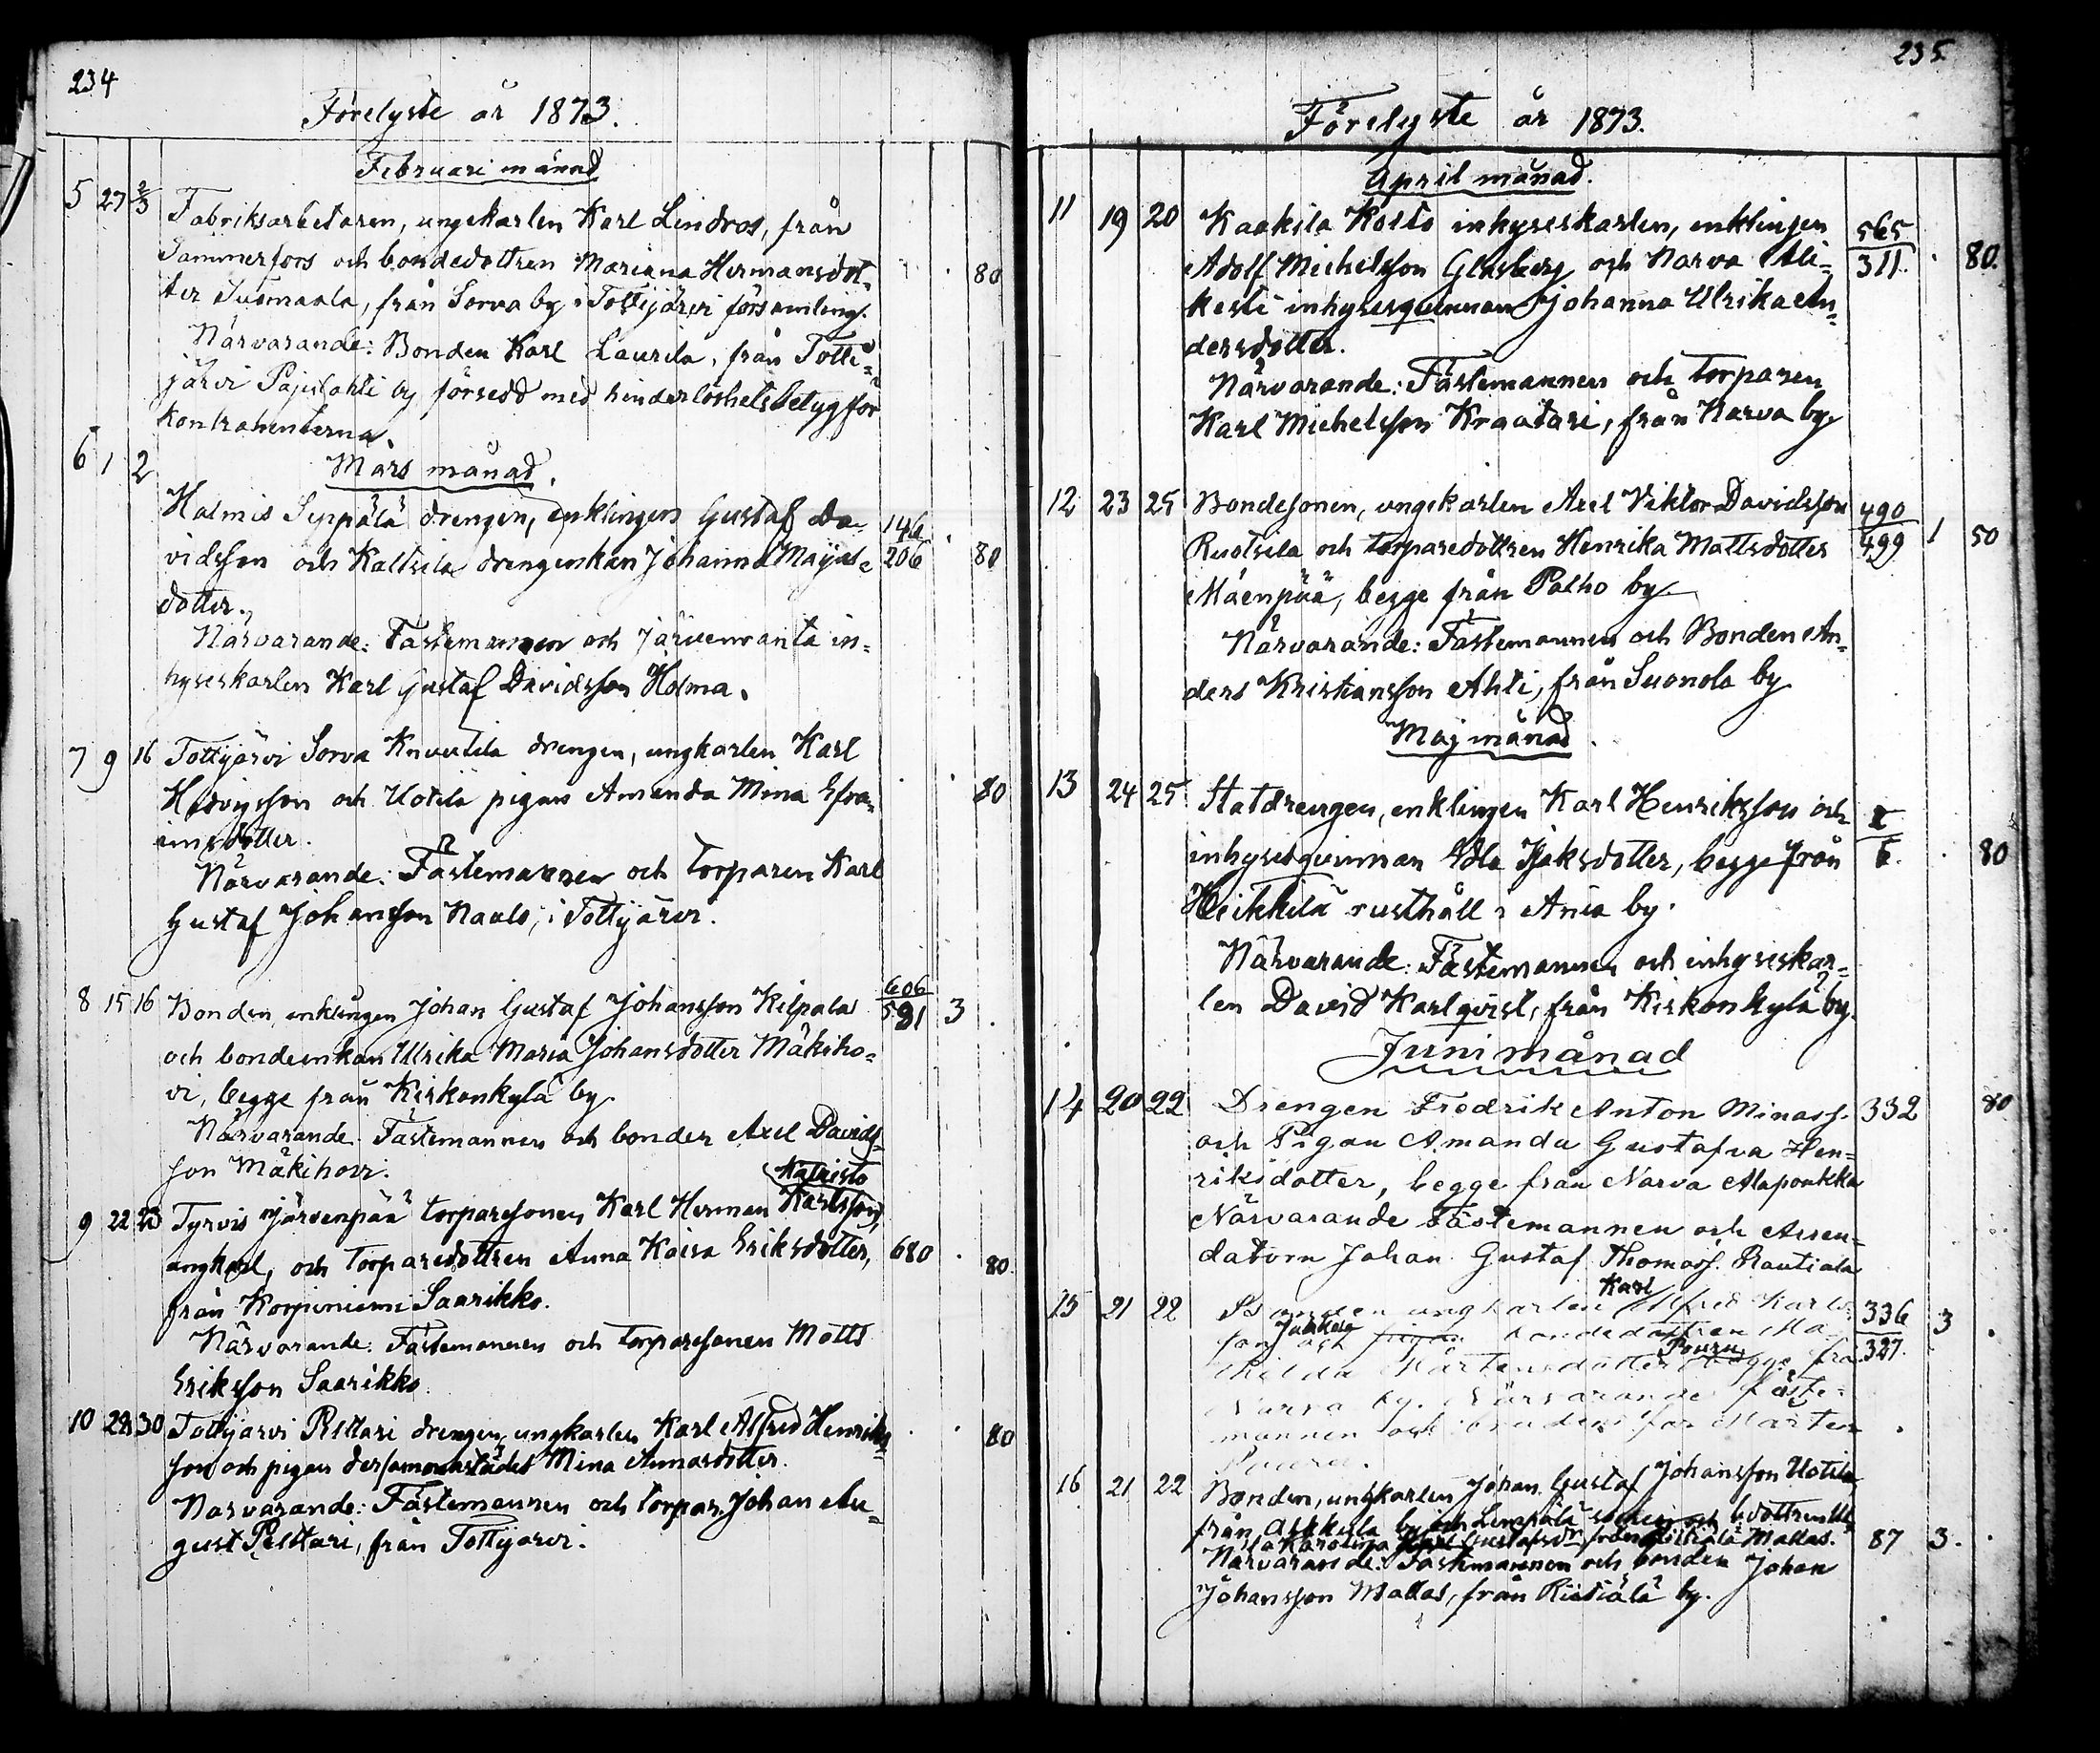 234
Förelyste år 1873.
Februari månad
5 27 2/3 Fabriksarbetaren, ungekarlen Karl Lindros, från
Tammerfors och bondedottren Mariana Hermansdot- 80
ter Tuomaala, från Sorva by i Tottijärvi församling.
Närvarande: Bonden Karl Laurila, från Totti=
järvi Pajulahti by försedd med hinderlöshetsbetyg för
kontrahenterna.
6 1 2 Mars månad.
Halmis Seppälä drengen, enklingen Gustaf Da- 146
vidsson och Kaltsila drengenkan Johanna Majas- 206 80
dotter.
Närvarande: Fästemannen och Järvenranta in=
hyseskarlen Karl Gustaf Davidsson Holma.
7 9 16 Tottijärvi Sorva Knuutila drengen, ungkarlen Karl
Hedvigsson och Uotila pigan Amanda Mina Efra- 80
imsdotter.
Närvarande: Fästemannen och torparen Karl
Gustaf Johansson Naalo, i Tottijärvi.
8 15 16 Bonden, enklingen Johan Gustaf Johansson Kilpala 606 581 3
och bondeenkan Ulrika Maria Johansdotter Mäkiho=
vi, begge från Kirkonkylä by.
Närvarande: Fästemannen och bonden Axel Davids-
son Mäkihovi.
Katristo
9 22 23 Tyrvis Järvenpää torparesonen Karl Herman Karlsson,
ungkarl, och torparedottren Anna Kaisa Eriksdotter, 680 80
från Korpiniemi Saarikko.
Närvarande: Fästemannen och torparesonen Matts
Eriksson Saarikko.
10 28 30 Tottijärvi Pelttari drengen, ungkarlen Karl Alfred Henriks- 80
son och pigan dersammastädes Mina Annasdotter.
Närvarande: Fästemannen och torpar. Johan Au=
gust Pelttari, från Tottijärvi.
235
Förelyste år 1873.
April månad.
11 19 20 Kaakila Kosto inhyseskarlen, enklingen 565
Adolf Michelsson Glasberg och Narva Ali= 311. 80.
kesti inhysesqvinnan Johanna Ulrika An=
dersdotter.
Närvarande: Fästemannen och torparen
Karl Michelsson Kraatari, från Narva by.
12 23 25 Bondesonen, ungekarlen Axel Viktor Davidsson 490
Ruotsila och torparedottren Henrika Mattsdotter 499 1 50
Mäenpää, begge från Palho by.
Närvarande: Fästemannen och Bonden An=
ders Kristiansson Ahti, från Suonola by
Maj månad.
13 24 25 Statdrengen, enklingen Karl Henriksson och
inhysesqvinnan Eda Isaksdotter, begge från 80
Heikkilä rusthåll i Ania by.
Närvarande: Fästemannen och inhyseskar=
len David Karlqvist, från Kirkonkylä by.
Juni månad
14 20 22 Drengen Fredrik Anton Minass. 332 80
och Pigan Amanda Gustafva Hen=
riksdotter, begge från Narva Alaponkka
Närvarande Fästemannen och Arren=
datorn Johan Gustaf Thomass. Rautiala
Karl
15 21 22 Bonden ungkarlen Alfred Karls- 336 3
son och pigan bondedottren Ma- 327.
thilda Mårtensdotter begge från
Narva by. Närvarande fäste=
mannen och brudens far Mårten
16 21 22 Bonden, ungkarlen Johan Gustaf Johansson Uotila
från Alkkula by och Lempälä socken och bdottren Ul
Mallas. 87 3.
Närvarande: Fästemannen och bonden Johan
Johansson Mallas, från Riitiälä by.